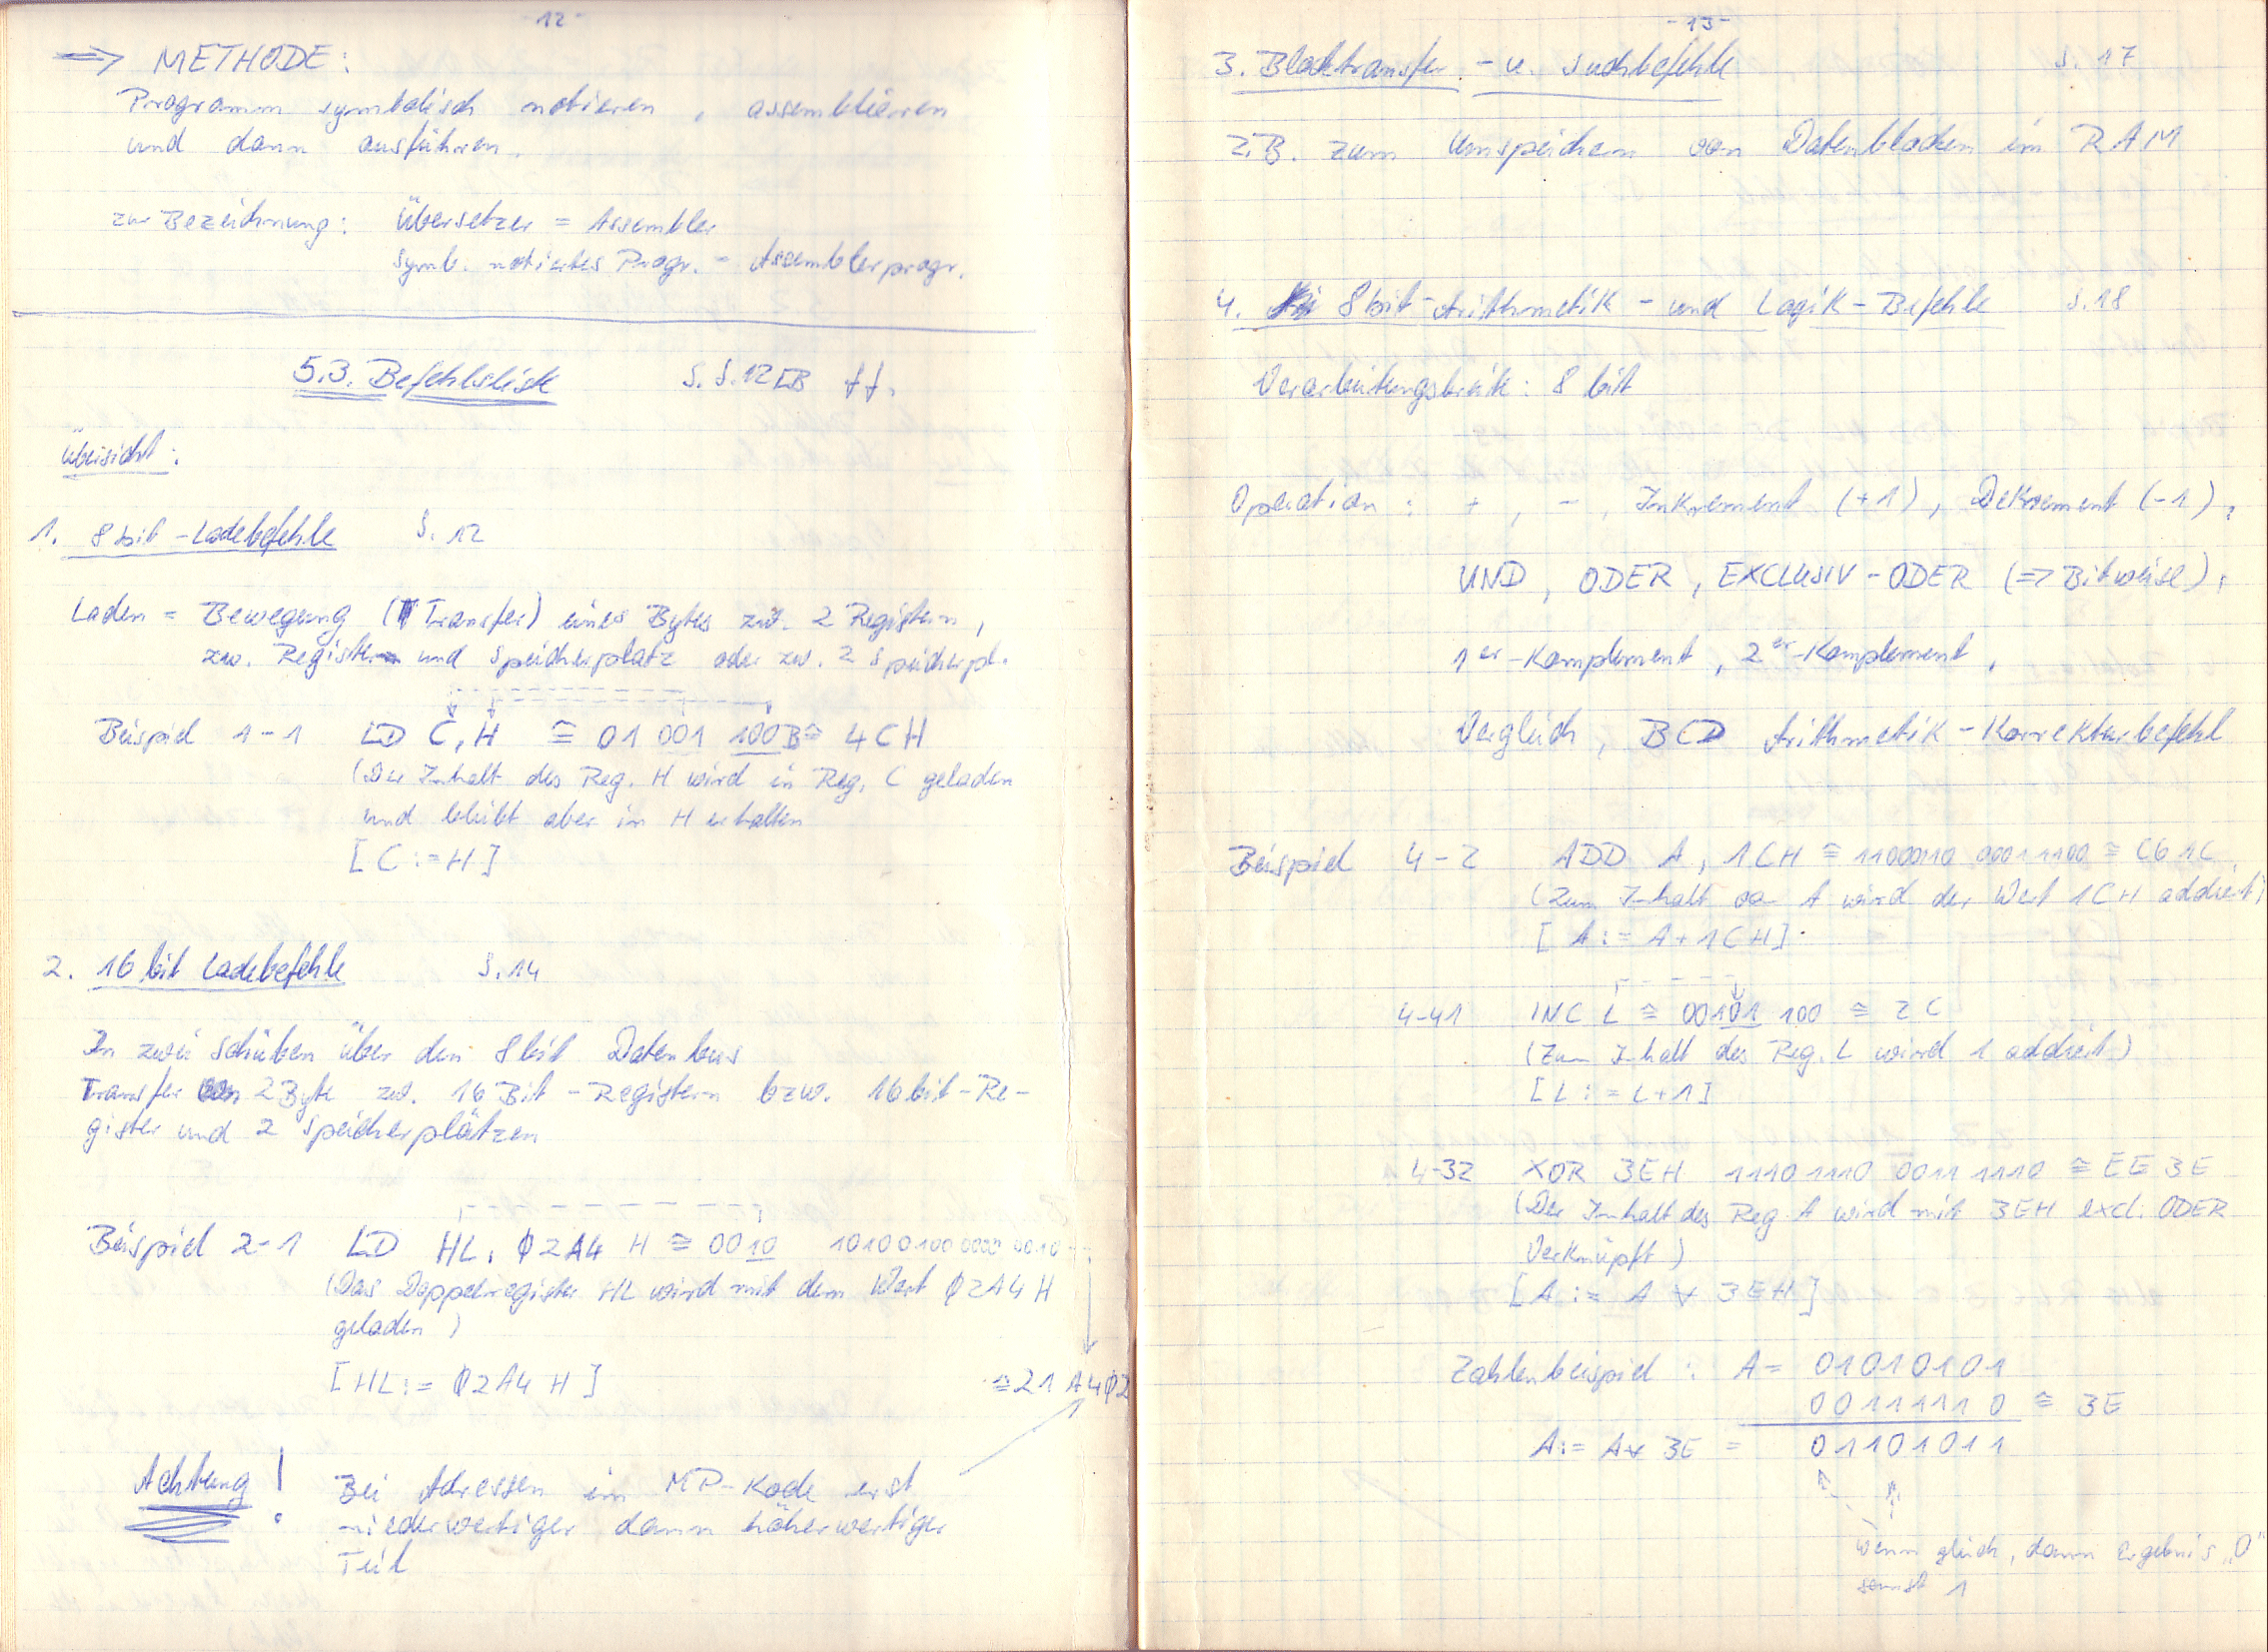 - 12 -
=> METHODE:
Programm symbolisch notieren, assemblieren
und dann ausführen.
zur Bezeichnung: Übersetzer = Assembler
symb. notiertes Progr. = Assemblerprogr.
5.3. Befehlsliste S. S.12 EB ff.
Übersicht:
1. 8 bit-Ladebefehle S. 12
Laden = Bewegung (Transfer) eines Bytes zw. 2 Registern,
zw. Register und Speicherplatz oder zw. 2 Speicherpl.
Beispiel 1-1 LD C,H ≅ 01 001 100B ≅ 4CH
(Der Inhalt des Reg. H wird in Reg. C geladen
und bleibt aber in H erhalten
[C:=H]
2. 16 bit Ladebefehle S. 14
In zwei Schüben über den 8bit Datenbus
Transfer von 2 Byte zw. 16 Bit-Registern bzw. 16 bit-Re-
gister und 2 Speicherplätzen
Beispiel 2-1 LD HL, 02A4 H ≅ 0010 10100100 0000 0010
(Das Doppelregister HL wird mit dem Wert 02A4 H
geladen)
[HL:= 02A4 H] ≅ 21 A4 02
Achtung! Bei Adressen im MP-Kode erst
niederwertiger dann höherwertiger
Teil
- 13 -
3. Blocktransfer- u. Suchbefehle S. 17
z.B. zum Umspeichern von Datenblöcken im RAM
4. 8 bit-Arithmetik- und Logik-Befehle S. 18
Verarbeitungsbreite: 8 bit
Operation: +, -, Inkrement (+1), Dekrement (-1),
UND, ODER, EXCLUSIV-ODER (=> Bitweise),
1er-Komplement, 2er-Komplement,
Vergleich, BCD Arithmetik-Korrekturbefehl
Beispiel 4-2 ADD A, 1CH ≅ 11000110 00011100 ≅ C6 1C
(Zum Inhalt von A wird der Wert 1CH addiert)
[A:= A+1CH]
4-41 INC L ≅ 00101 100 ≅ 2C
(Zum Inhalt des Reg. L wird 1 addiert)
[L:=L+1]
4-32 XOR 3EH 11101110 0011 1110 ≅ EE 3E
(Der Inhalt des Reg A wird mit 3EH excl. ODER
Verknüpft)
[A:= A ⩝ 3EH]
Zahlenbeispiel: A= 01010101
00111110 ≅ 3E
A:= A ⩝ 3E = 01101011
wenn gleich, dann Ergebnis „0"
sonst 1